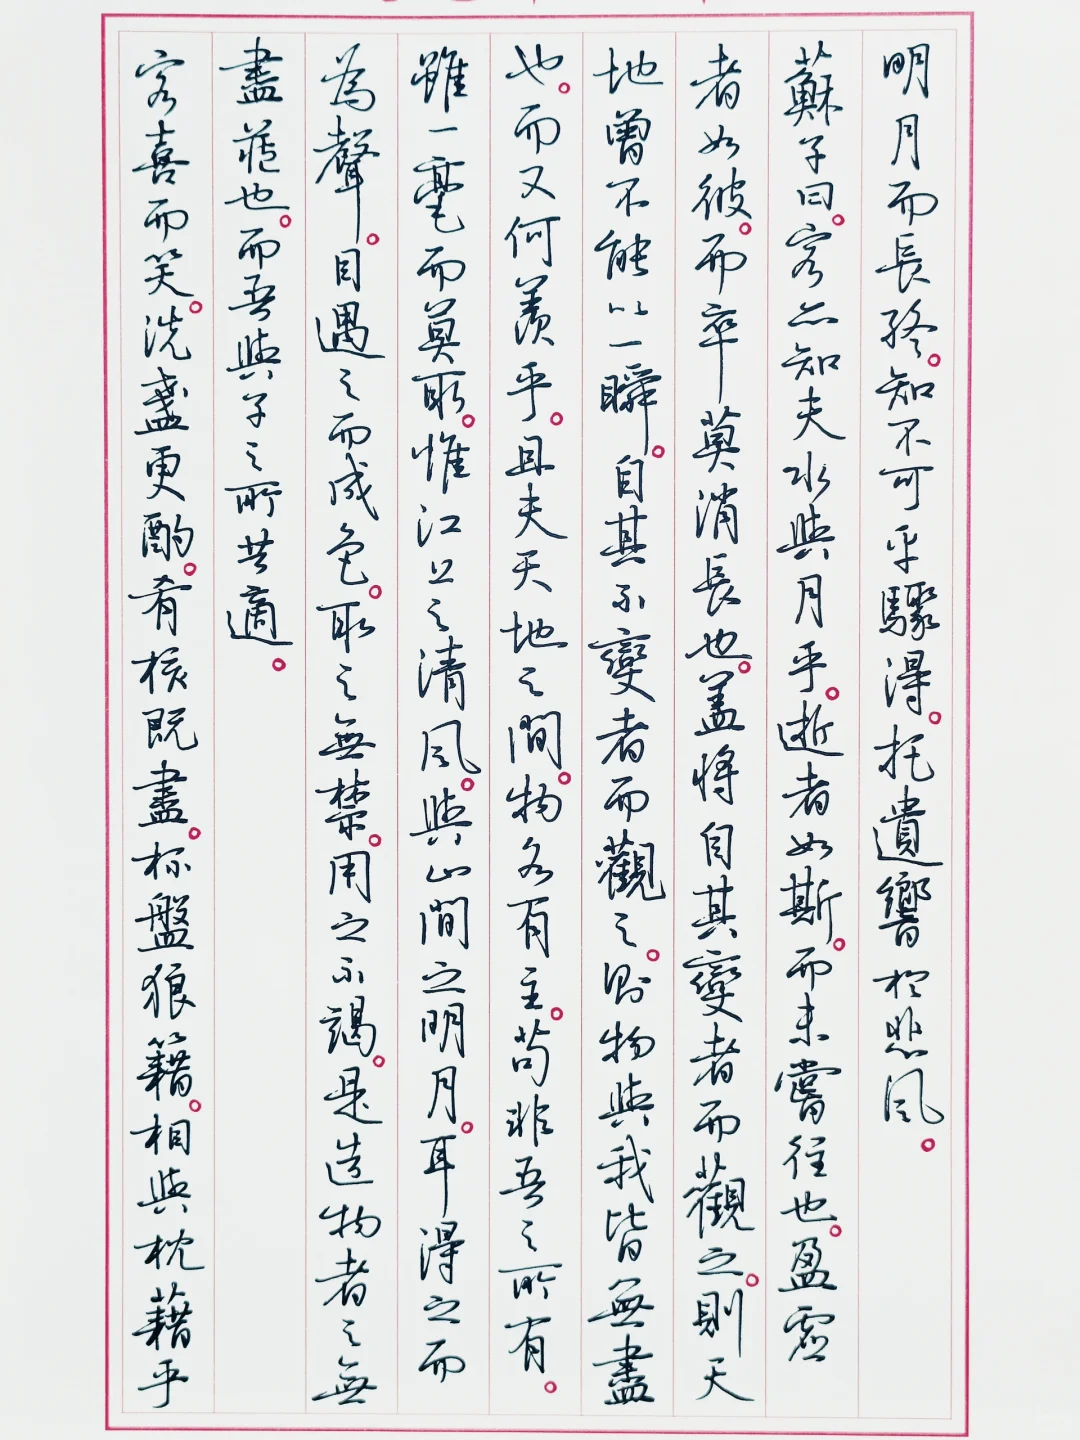 明月而長終。知不可乎驟得。托遺響於悲風。
蘇子曰。客亦知夫水與月乎。逝者如斯。而未嘗往也。盈虛
者如彼。而卒莫消長也。蓋將自其變者而觀之。則天
地曾不能以一瞬。自其不變者而觀之。則物與我皆無盡
也。而又何羨乎。且夫天地之間。物各有主。苟非吾之所有。
雖一毫而莫取。惟江上之清風。與山間之明月。耳得之而
為聲。目遇之而成色。取之無禁。用之不竭。是造物者之無
盡藏也。而吾與子之所共適。
客喜而笑。洗盞更酌。肴核既盡。杯盤狼籍。相與枕藉乎